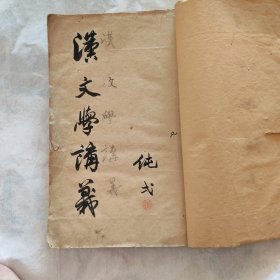 漢文學講義
漢文學講義
純弌